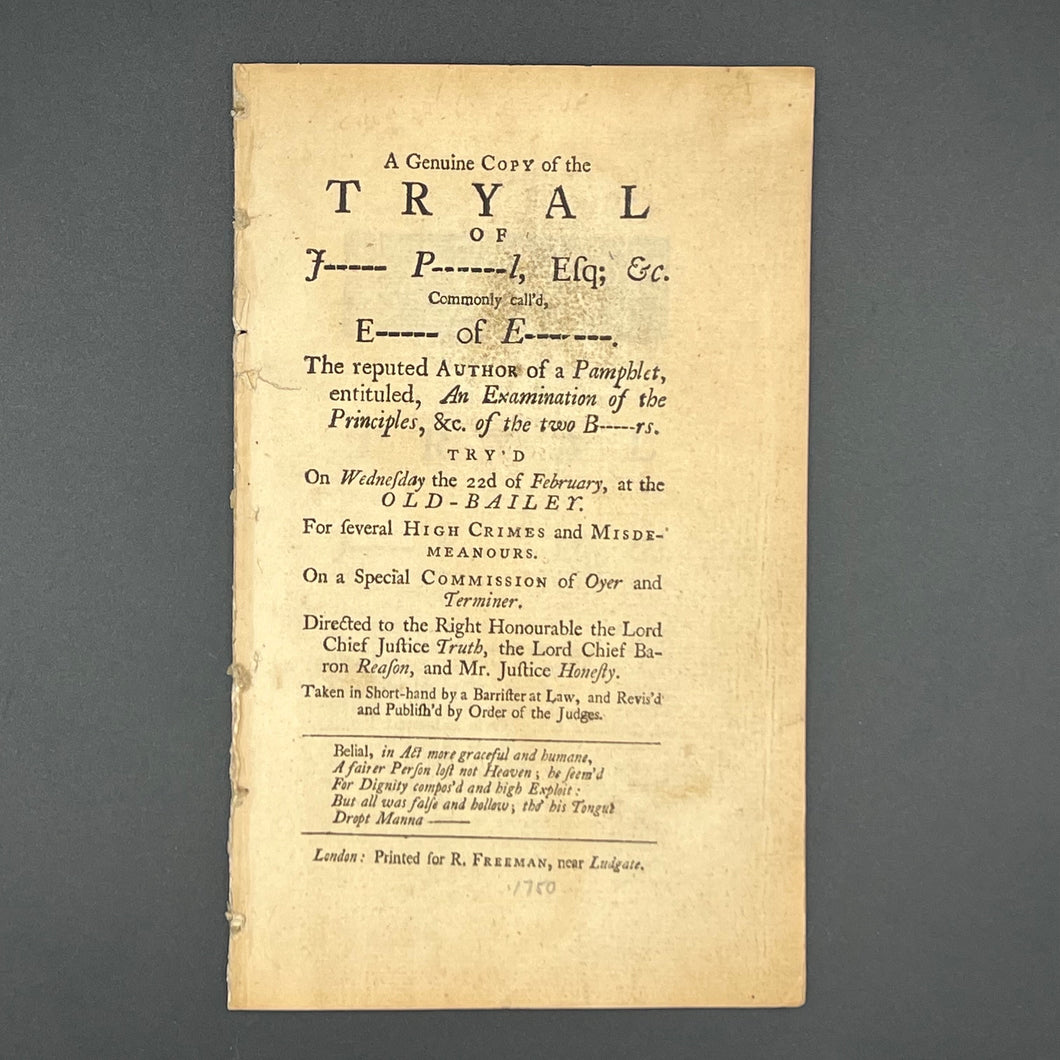 A Genuine COPY of the
TRYAL
OF
J----- P------l, Eſq; &c.
Commonly call'd,
E----- of E-------.
The reputed AUTHOR of a Pamphlet,
entituled, An Examination of the
Principles, &c. of the two B----rs.
TRY'D
On Wedneſday the 22d of February, at the
OLD-BAILEY.
For ſeveral HIGH CRIMES and MISDE-
MEANOURS.
On a Special COMMISSION of Oyer and
Terminer.
Directed to the Right Honourable the Lord
Chief Juſtice Truth, the Lord Chief Ba-
ron Reaſon, and Mr. Juſtice Honeſty.
Taken in Short-hand by a Barriſter at Law, and Revis'd
and Publiſh'd by Order of the Judges.
Belial, in Act more graceful and humane,
A fairer Perſon loſt not Heaven; he ſeem'd
For Dignity compos'd and high Exploit:
But all was falſe and hollow; tho' his Tongue
Dropt Manna ———
London: Printed for R. FREEMAN, near Ludgate.
1750